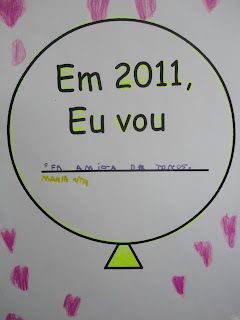 Em 2011,
Eu vou
SER AMIGA DE TODOS.
MARIA RITA